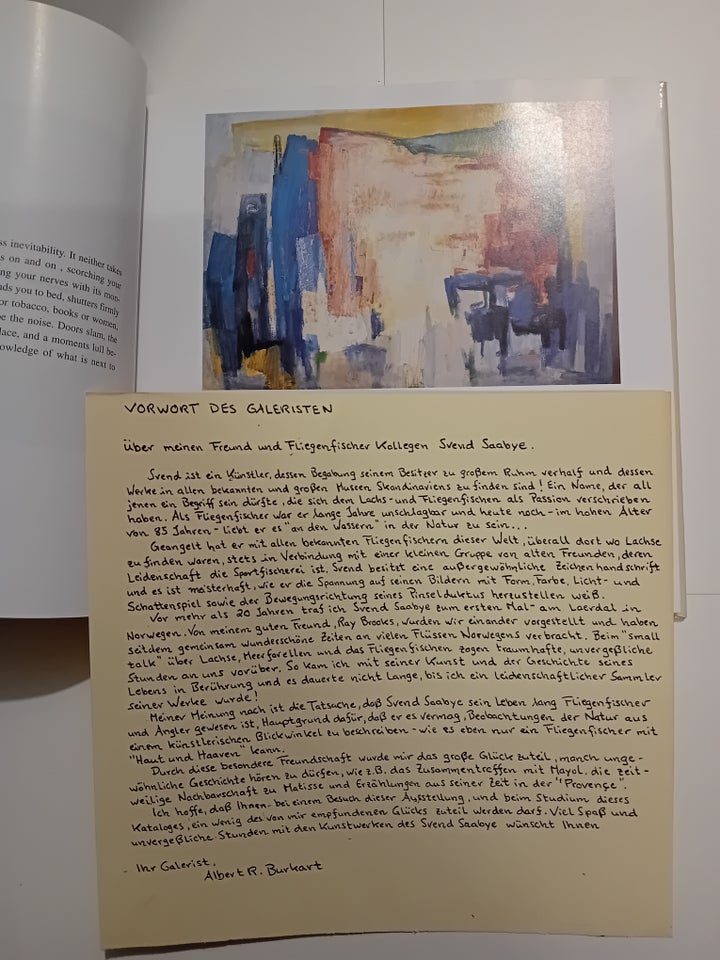 ss inevitability. It neither takes
s on and on , scorching your
ng your nerves with its mon-
nds you to bed, shutters firmly
or tobacco, books or women,
be the noise. Doors slam, the
lace, and a moments lull be-
owledge of what is next to
VORWORT DES GALERISTEN
Über meinen Freund und Fliegenfischer Kollegen Svend Saabye.
Svend ist ein Künstler, dessen Begabung seinem Besitzer zu großem Ruhm verhalf und dessen
Werke in allen bekannten und großen Museen Skandinaviens zu finden sind! Ein Name, der all
jenen ein Begriff sein dürfte, die sich dem Lachs- und Fliegenfischen als Passion verschrieben
haben. Als Fliegenfischer war er lange Jahre unschlagbar und heute noch - im hohen Alter
von 85 Jahren - liebt er es "an den Wassern" in der Natur zu sein...
Geangelt hat er mit allen bekannten Fliegenfischern dieser Welt, überall dort wo Lachse
zu finden waren, stets in Verbindung mit einer kleinen Gruppe von alten Freunden, deren
Leidenschaft die Sportfischerei ist. Svend besitzt eine außergewöhnliche Zeichenhandschrift
und es ist meisterhaft, wie er die Spannung auf seinen Bildern mit Form, Farbe, Licht- und
Schattenspiel sowie der Bewegungsrichtung seines Pinselduktus herzustellen weiß.
Vor mehr als 20 Jahren traf ich Svend Saabye zum ersten Mal - am Laerdal in
Norwegen. Von meinem guten Freund, Ray Brooks, wurden wir einander vorgestellt und haben
seitdem gemeinsam wunderschöne Zeiten an vielen Flüssen Norwegens verbracht. Beim "small
talk" über Lachse, Meerforellen und das Fliegenfischen zogen traumhafte, unvergeßliche
Stunden an uns vorüber. So kam ich mit seiner Kunst und der Geschichte seines
Lebens in Berührung und es dauerte nicht lange, bis ich ein leidenschaftlicher Sammler
seiner Werke wurde!
Meiner Meinung nach ist die Tatsache, daß Svend Saabye sein Leben lang Fliegenfischer
und Angler gewesen ist, Hauptgrund dafür, daß er es vermag, Beobachtungen der Natur aus
einem künstlerischen Blickwinkel zu beschreiben - wie es eben nur ein Fliegenfischer mit
"Haut und Haaren" kann.
Durch diese besondere Freundschaft wurde mir das große Glück zuteil, manch unge-
wöhnliche Geschichte hören zu dürfen, wie z.B. das Zusammentreffen mit Mayol, die zeit-
weilige Nachbarschaft zu Matisse und Erzählungen aus seiner Zeit in der "Provençe".
Ich hoffe, daß Ihnen - bei einem Besuch dieser Ausstellung, und beim Studium dieses
Kataloges, ein wenig des von mir empfundenen Glücks zuteil werden darf. Viel Spaß und
unvergeßliche Stunden mit den Kunstwerken des Svend Saabye wünscht Ihnen
Ihr Galerist.
Albert R. Burkart